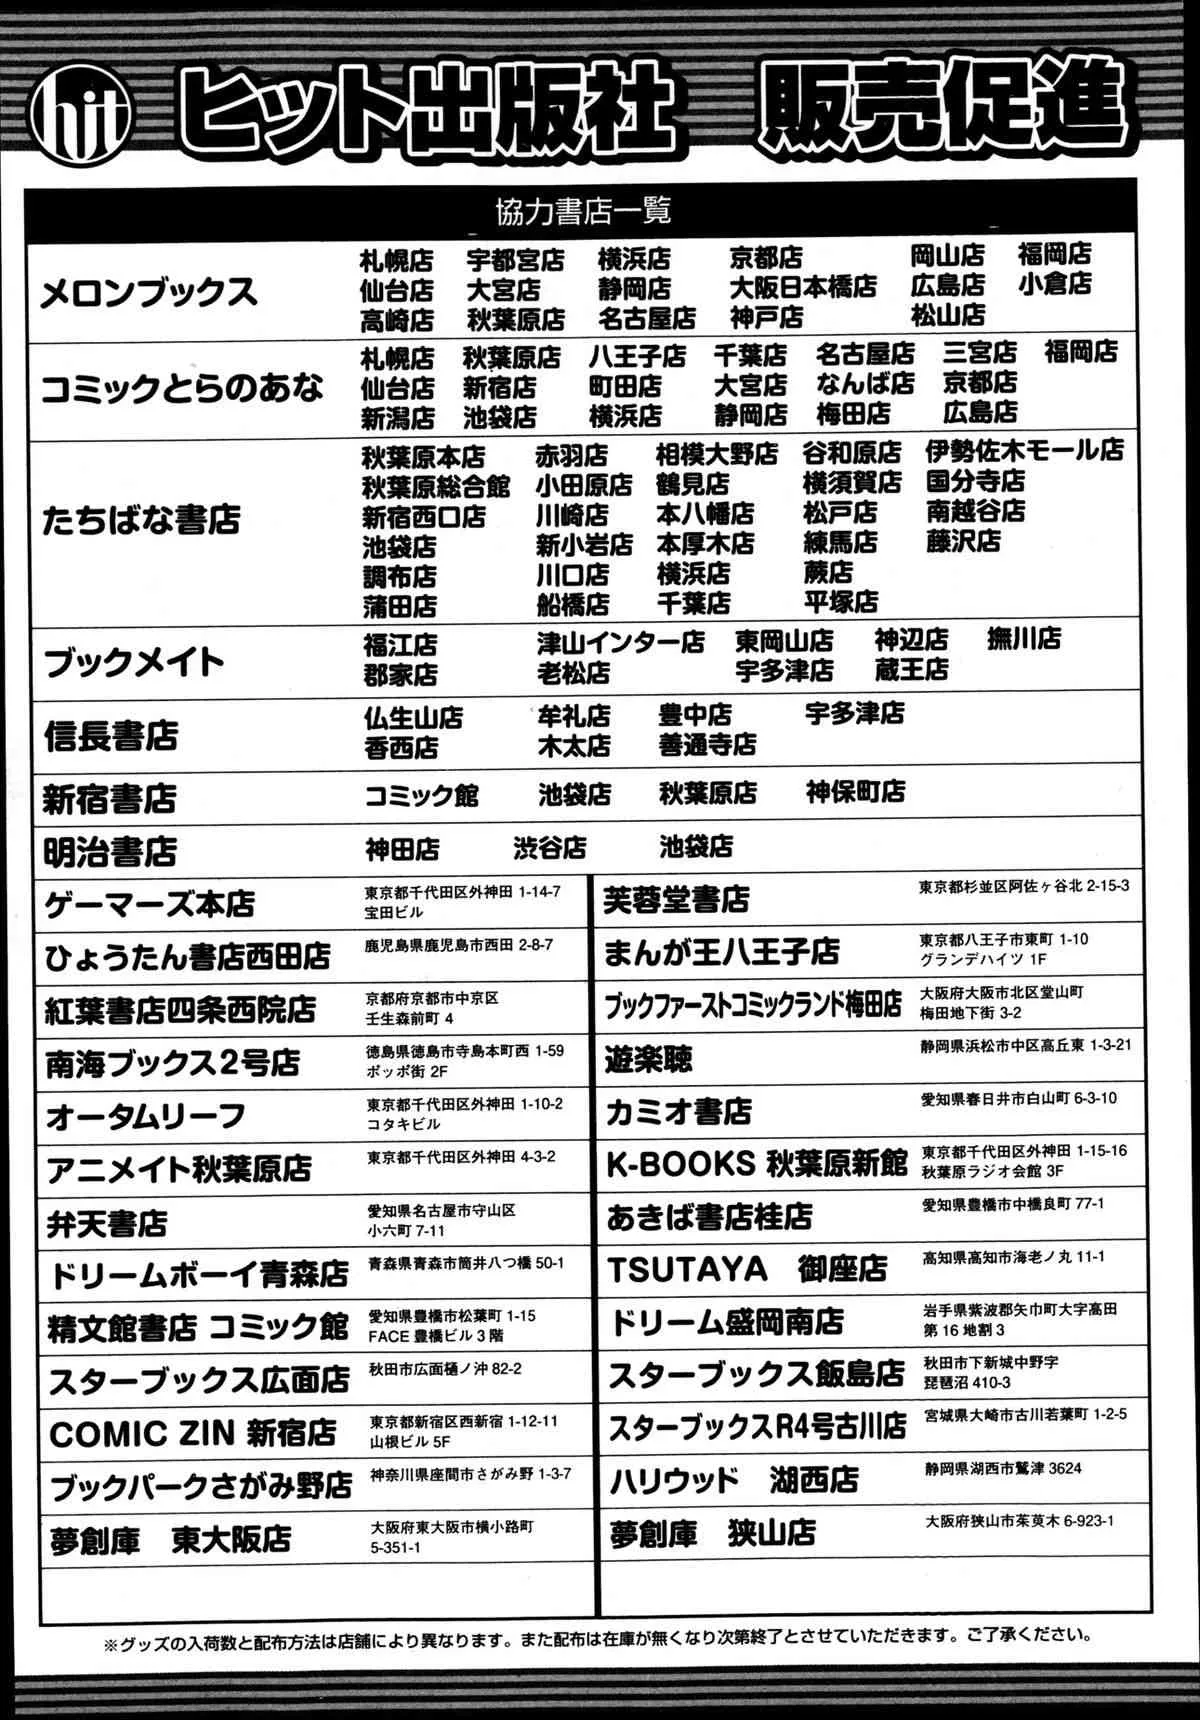 hit ヒット出版社 販売促進
協力書店一覧
メロンブックス
札幌店 宇都宮店 横浜店 京都店 岡山店 福岡店
仙台店 大宮店 静岡店 大阪日本橋店 広島店 小倉店
高崎店 秋葉原店 名古屋店 神戸店 松山店
コミックとらのあな
札幌店 秋葉原店 八王子店 千葉店 名古屋店 三宮店 福岡店
仙台店 新宿店 町田店 大宮店 なんば店 京都店
新潟店 池袋店 横浜店 静岡店 梅田店 広島店
たちばな書店
秋葉原本店 赤羽店 相模大野店 谷和原店 伊勢佐木モール店
秋葉原総合館 小田原店 鶴見店 横須賀店 国分寺店
新宿西口店 川崎店 本八幡店 松戸店 南越谷店
池袋店 新小岩店 本厚木店 練馬店 藤沢店
調布店 川口店 横浜店 蕨店
蒲田店 船橋店 千葉店 平塚店
ブックメイト
福江店 津山インター店 東岡山店 神辺店 撫川店
郡家店 老松店 宇多津店 蔵王店
信長書店
仏生山店 牟礼店 豊中店 宇多津店
香西店 木太店 善通寺店
新宿書店 コミック館 池袋店 秋葉原店 神保町店
明治書店 神田店 渋谷店 池袋店
ゲーマーズ本店 東京都千代田区外神田 1-14-7
宝田ビル
ひょうたん書店西田店 鹿児島県鹿児島市西田 2-8-7
紅葉書店四条西院店 京都府京都市中京区
壬生森前町 4
南海ブックス2号店 徳島県徳島市寺島本町西 1-59
ポッポ街 2F
オータムリーフ 東京都千代田区外神田 1-10-2
コタキビル
アニメイト秋葉原店 東京都千代田区外神田 4-3-2
弁天書店 愛知県名古屋市守山区
小六町 7-11
ドリームボーイ青森店 青森県青森市筒井八つ橋 50-1
精文館書店 コミック館 愛知県豊橋市松葉町 1-15
FACE 豊橋ビル 3 階
スターブックス広面店 秋田市広面樋ノ沖 82-2
COMIC ZIN 新宿店 東京都新宿区西新宿 1-12-11
山根ビル 5F
ブックパークさがみ野店 神奈川県座間市さがみ野 1-3-7
夢創庫 東大阪店 大阪府東大阪市横小路町
5-351-1
芙蓉堂書店 東京都杉並区阿佐ヶ谷北 2-15-3
まんが王八王子店 東京都八王子市東町 1-10
グランデハイツ 1F
ブックファーストコミックランド梅田店 大阪府大阪市北区堂山町
梅田地下街 3-2
遊楽聴 静岡県浜松市中区高丘東 1-3-21
カミオ書店 愛知県春日井市白山町 6-3-10
K-BOOKS 秋葉原新館 東京都千代田区外神田 1-15-16
秋葉原ラジオ会館 3F
あきば書店桂店 愛知県豊橋市中橋良町 77-1
TSUTAYA 御座店 高知県高知市海老ノ丸 11-1
ドリーム盛岡南店 岩手県紫波郡矢巾町大字高田
第 16 地割 3
スターブックス飯島店 秋田市下新城中野字
琵琶沼 410-3
スターブックスR4号古川店 宮城県大崎市古川若葉町 1-2-5
ハリウッド 湖西店 静岡県湖西市鷲津 3624
夢創庫 狭山店 大阪府狭山市茱萸木 6-923-1
※グッズの入荷数と配布方法は店舗により異なります。また配布は在庫が無くなり次第終了とさせていただきます。ご了承ください。